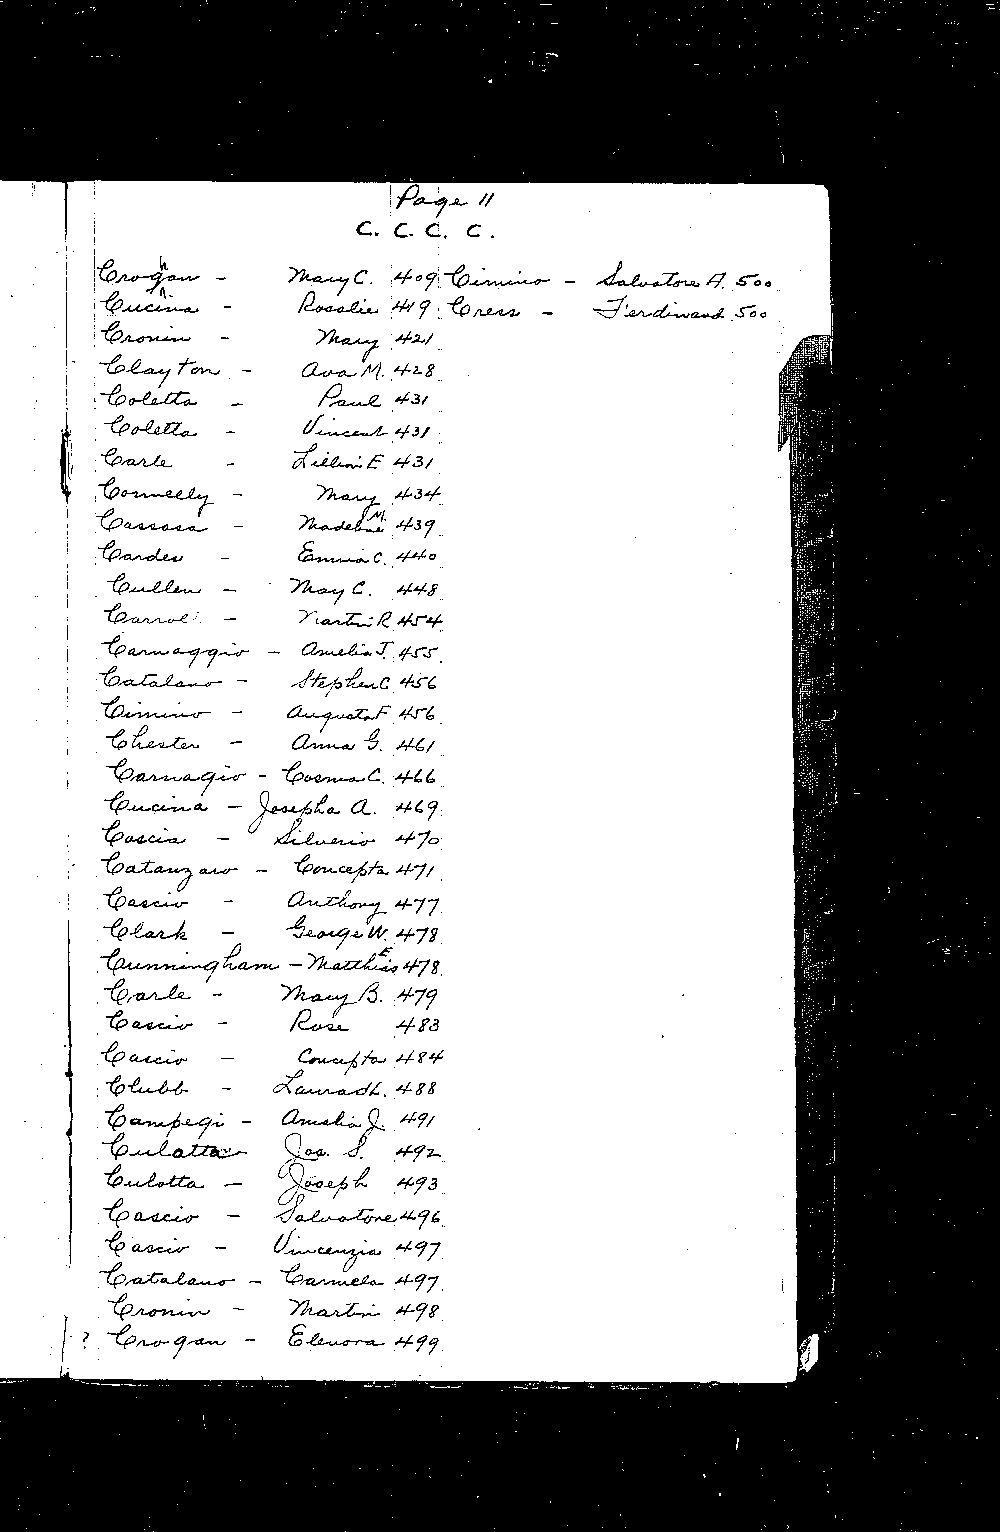 Page 11
C. C. C. C.
Croghan - Mary C. 409 Cimino - Salvatore A. 500
Cucina - Rosalie 419 Cress - Ferdinand 500
Cronin - Mary 421
Clayton - Ava M. 428
Coletta - Paul 431
Coletta - Vincent 431
Carle - Lillian E 431
Connelly - Mary 434
Cassasa - Madeline M. 439
Carder - Emma C. 440
Cullen - May C. 448
Carrol - Martin R 454
Carnaggio - Amelia J. 455
Catalano - Stephen C 456
Cimino - Augusta F 456
Chester - Anna G. 461
Carnagio - Cosma C. 466
Cucina - Josepha A. 469
Coscia - Silverio 470
Catanzaro - Concepta 471
Cascio - Anthony 477
Clark - George W. 478
Cunningham - Matthias E 478
Carle - Mary B. 479
Cascio - Rose 483
Cascio - Concepta 484
Clubb - Laura L. 488
Campegi - Amelia J. 491
Culotta - Jos. S. 492
Culotta - Joseph 493
Cascio - Salvatore 496
Cascio - Vincenzia 497
Catalano - Carmela 497
Cronin - Martin 498
? Crogan - Elenora 499